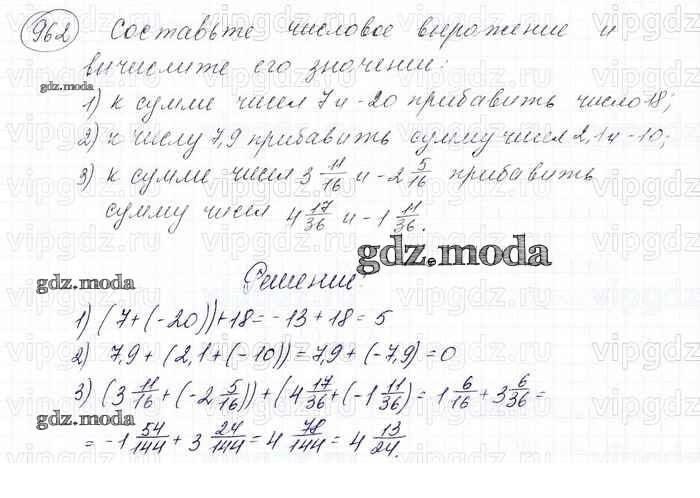 962 Составьте числовое выражение и
вичислите его значении:
gdz.moda
1) к сумме чисел 7 и -20 прибавить число 18;
2) к числу 7,9 прибавить сумму чисел 2,1 и -10;
3) к сумме чисел 3 11/16 и -2 5/16 прибавить
сумму чисел 4 17/36 и -1 11/36.
gdz.moda
gdz.moda
Решение:
1) (7+(-20))+18=-13+18=5
2) 7,9+(2,1+(-10))=7,9+(-7,9)=0
3) (3 11/16+(-2 5/16))+(4 17/36+(-1 11/36)=1 6/16+3 6/36=
gdz.moda
=-1 54/144+3 24/144=4 78/144=4 13/24.